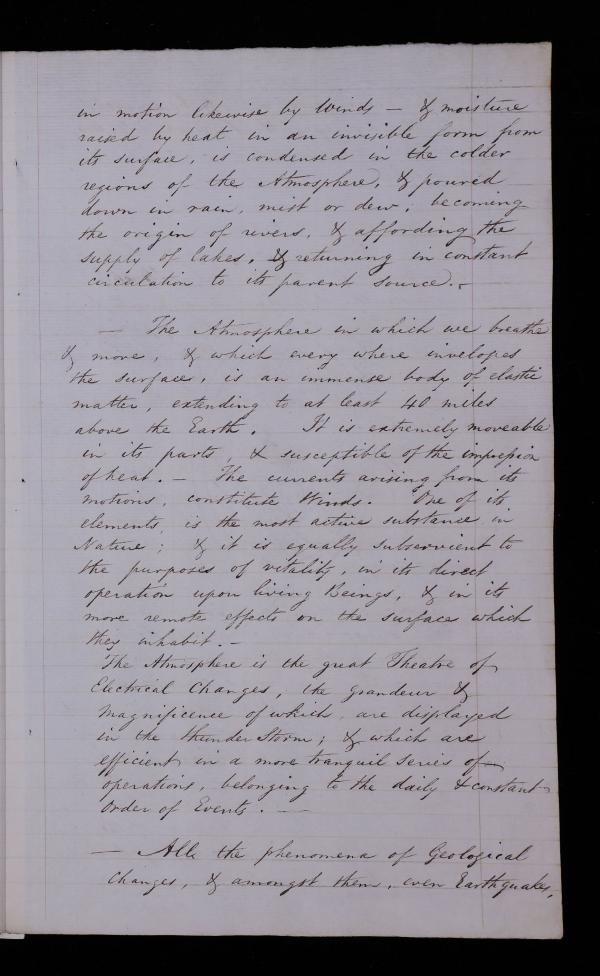 in motion likewise by Winds — & moisture
raised by heat in an invisible form from
its surface, is condensed in the colder
regions of the Atmosphere, & poured
down in rain, mist or dew; becoming
the origin of rivers, & affording the
supply of lakes, & returning in constant
circulation to its parent source. –
— The Atmosphere in which we breathe
& move, & which every where invelopes
the surface, is an immense body of elastic
matter, extending to at least 40 miles
above the Earth. It is extremely moveable
in its parts, & susceptible of the impression
of heat. – The currents arising from its
motions, constitute Winds. One of its
elements is the most active substance in
Nature; & it is equally subservient to
the purposes of vitality, in its direct
operation upon living Beings, & in its
more remote effects on the surface which
they inhabit. –
The Atmosphere is the great Theatre of
Electrical Changes, the grandeur &
Magnificence of which, are displayed
in the thunder Storm; & which are
efficient in a more tranquil series of
operations, belonging to the daily & constant
Order of Events. —
— All the phenomena of Geological
Changes, & amongst them, even Earthquakes,